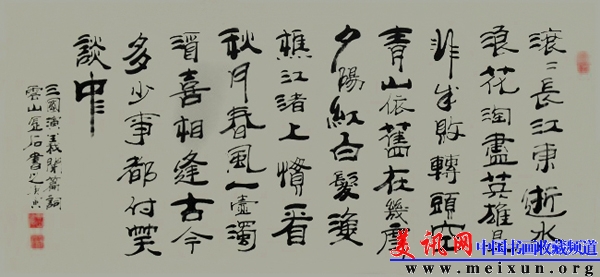 滚〻長江東逝水
浪花淘盡英雄是
非成敗轉頭空
青山依舊在幾度
夕陽紅白髮漁
樵江渚上慣看
秋月春風一壺濁
酒喜相逢古今
多少事都付笑
談中
三國演義開篇詞
雲山石書之
美讯网 中国书画收藏频道
www.meixun.org